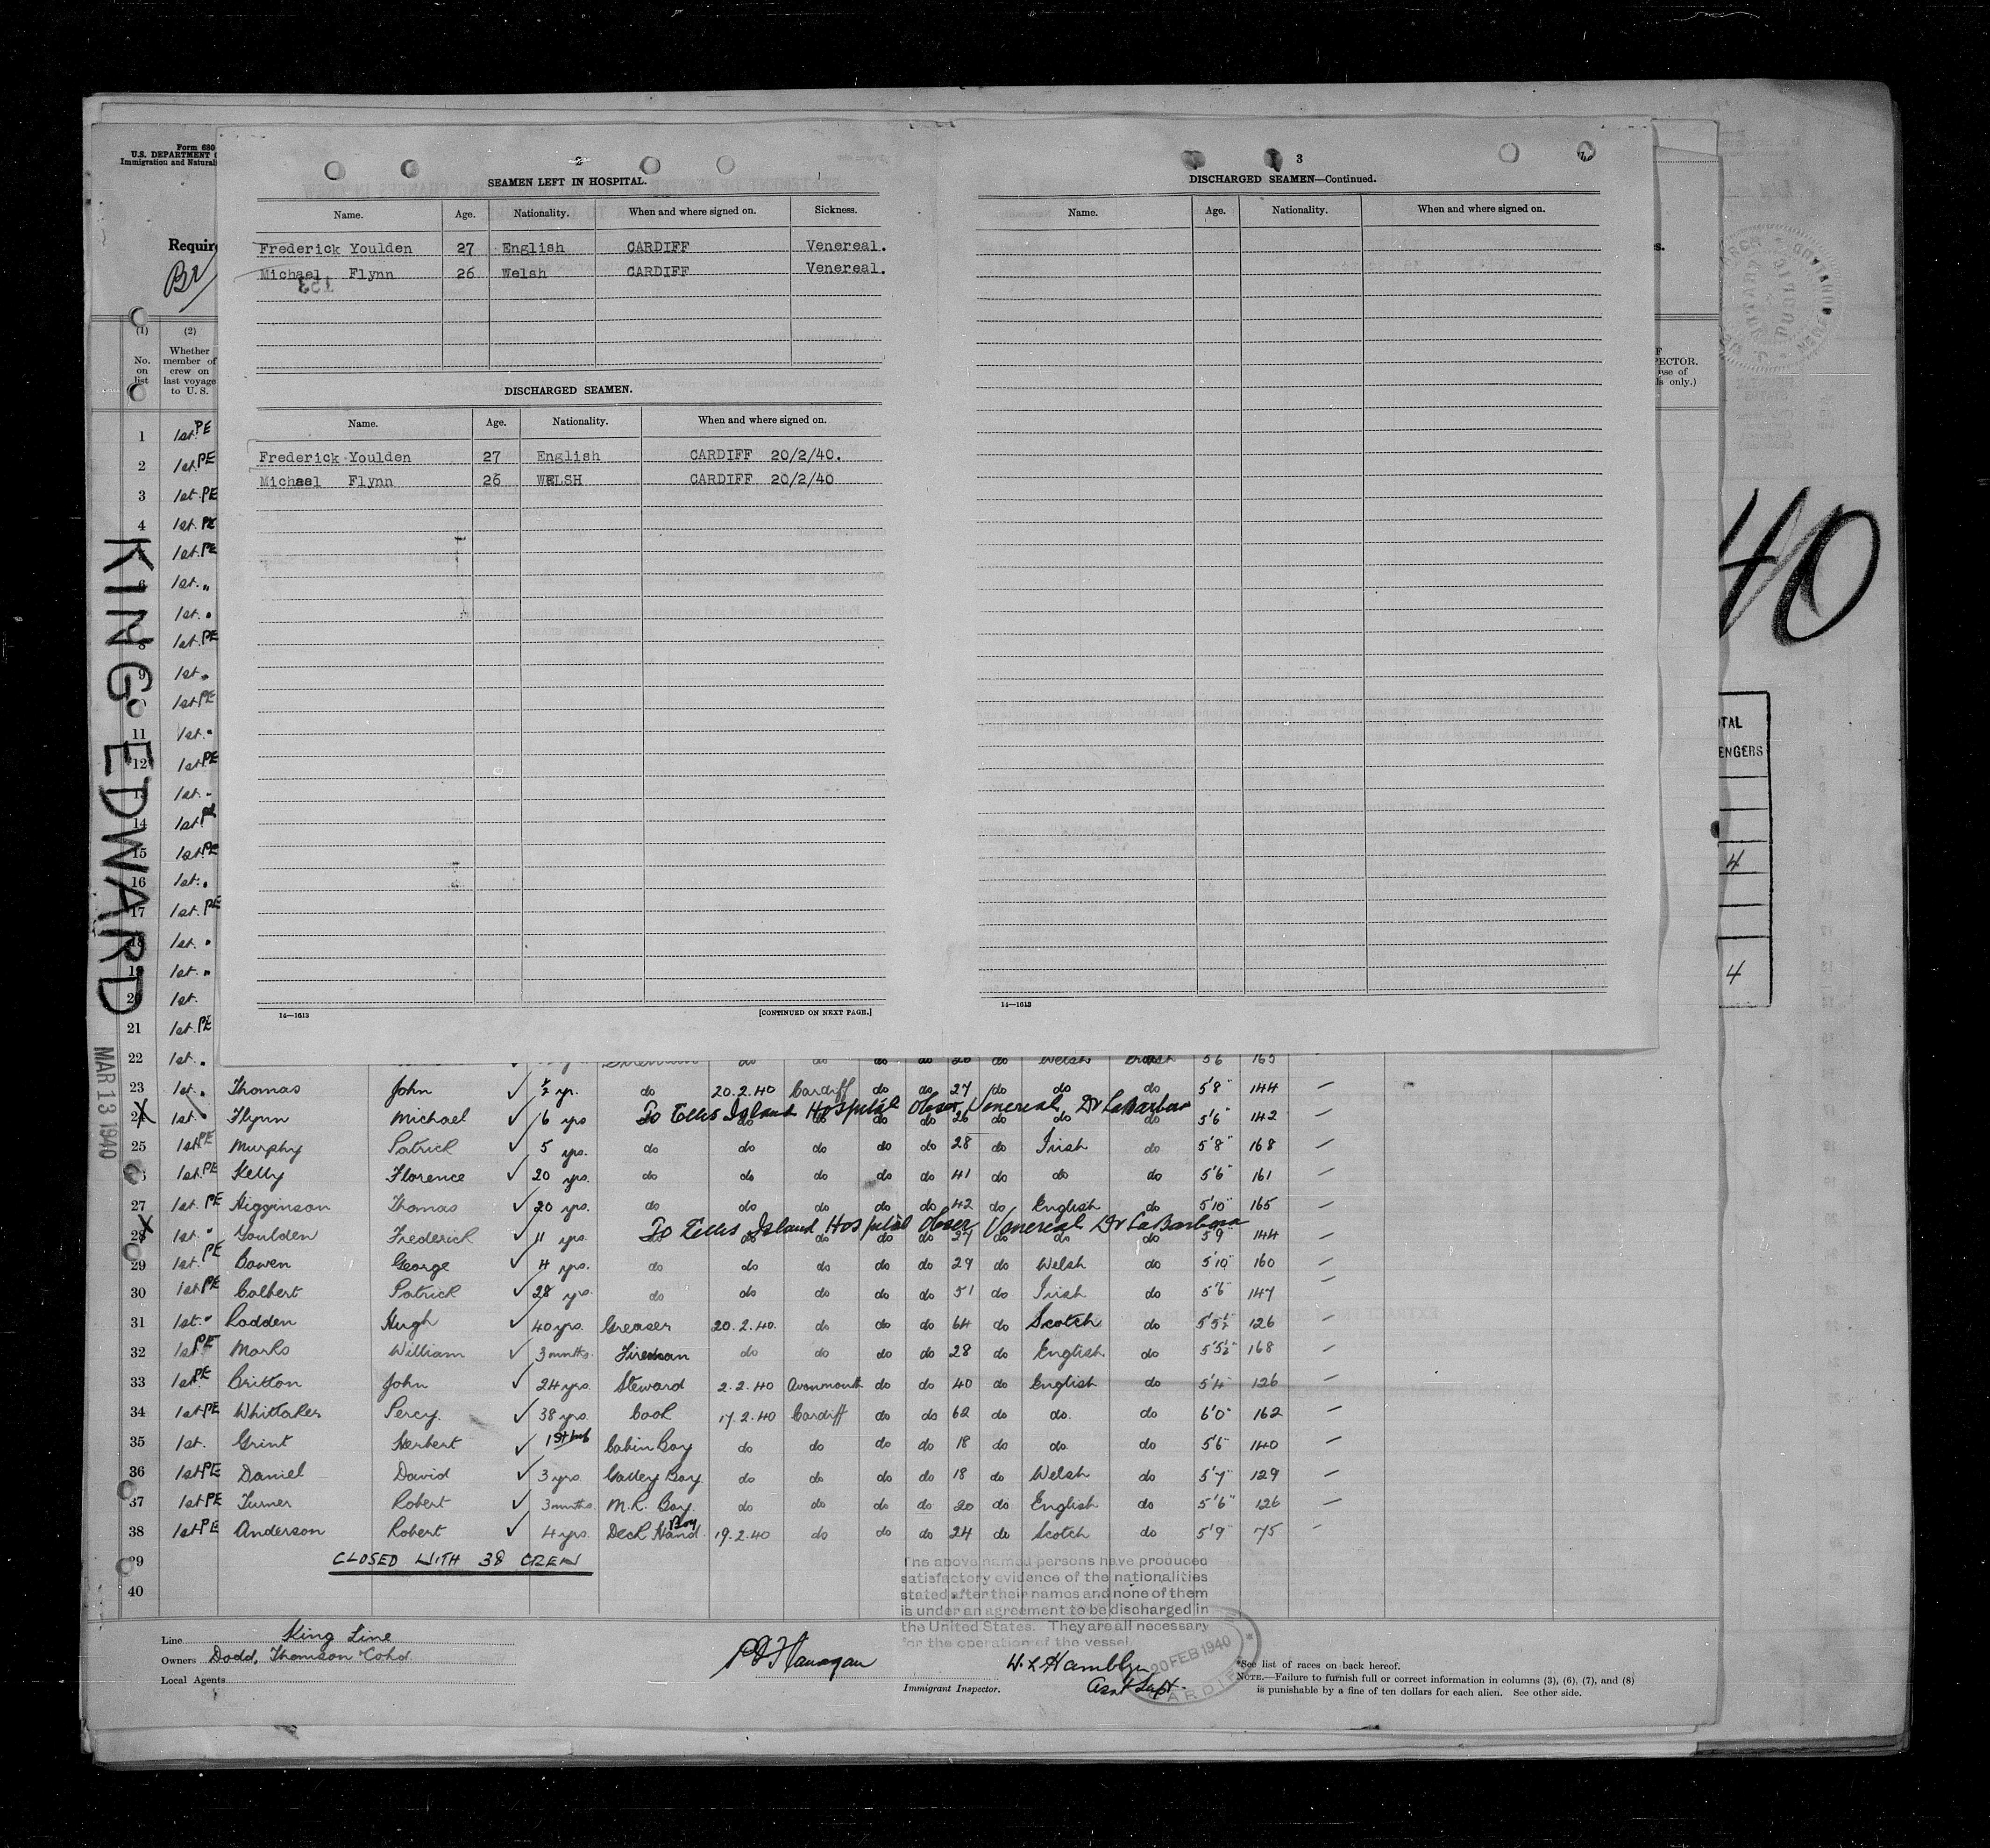 Form 680
U.S. DEPARTMENT
Immigration and
Br
(1) (2)
No. on list Whether member of crew on last voyage to U. S.
KING EDWARD
MAR 13 1940
2
SEAMEN LEFT IN HOSPITAL.
Name. Age. Nationality. When and where signed on. Sickness.
Frederick Youlden 27 English CARDIFF Venereal.
Michael Flynn 26 Welsh CARDIFF Venereal.
DISCHARGED SEAMEN.
Name. Age. Nationality. When and where signed on.
Frederick Youlden 27 English CARDIFF 20/2/40.
Michael Flynn 26 WELSH CARDIFF 20/2/40
14—1613 [CONTINUED ON NEXT PAGE.]
3
DISCHARGED SEAMEN—Continued.
Name. Age. Nationality. When and where signed on.
14—1613
40
4
4
1 1st PE
2 1st PE
3 1st PE
4 1st PE
1st PE
6 1st "
1st "
8 1st PE
9 1st "
1st PE
11 1st "
12 1st PE
13 1st "
14 1st PE
15 1st PE
16 1st "
17 1st PE
18 1st "
19 1st "
20 1st
21 1st PE
22 1st " do do do do 26 do Welsh 5'6 165 —
23 1st " Thomas John ✓ ½ yr. do 20.2.40 Cardiff do do 27 do do do 5'8" 144 —
To Ellis Island Hospital Obser. Venereal Dr LaBarbera
24 1st Flynn Michael ✓ 6 yrs do do do do 26 do do do 5'6" 142 —
25 1st PE Murphy Patrick ✓ 5 yrs. do do do do do 28 do Irish do 5'8" 168 —
1st PE Kelly Florence ✓ 20 yrs. do do do do do 41 do do do 5'6" 161 —
27 1st PE Higginson Thomas ✓ 20 yrs. do do do do do 42 do English do 5'10" 165 —
To Ellis Island Hospital Obser Venereal Dr LaBarbera
28 1st " Youlden Frederick ✓ 11 yrs. do do do do 27 do do do 5'9" 144 —
29 1st PE Bowen George ✓ 4 yrs. do do do do do 29 do Welsh do 5'10" 160 —
30 1st PE Colbert Patrick ✓ 28 yrs do do do do do 51 do Irish do 5'6" 147 —
31 1st " Rodden Hugh ✓ 40 yrs. Greaser 20.2.40. do do do 64 do Scotch do 5'5½" 126 —
32 1st PE Marks William ✓ 3 mnths. Fireman do do do do 28 do English do 5'5½" 168 —
33 1st PE Britton John ✓ 24 yrs. Steward 2.2.40 Avonmouth do do 40 do English do 5'4" 126 —
34 1st PE Whittaker Percy. ✓ 38 yrs. Cook 17.2.40 Cardiff do do 62 do do. do 6'0" 162 —
35 1st. Grint Herbert ✓ Cabin Boy do do do do 18 do do. do 5'6" 140 —
36 1st PE Daniel David ✓ 3 yrs. Galley Boy do do do do 18 do Welsh do 5'7" 129 —
37 1st PE Turner Robert ✓ 3 mnths. M.R. Boy. do do do do 20 do English do 5'6" 126 —
38 1st PE Anderson Robert ✓ 4 yrs. Deck Hand Boy 19.2.40 do do do 24 do Scotch do 5'9" 175 —
39 CLOSED WITH 38 CREW
40
The above named persons have produced
satisfactory evidence of the nationalities
stated after their names and none of them
is under an agreement to be discharged in
the United States. They are all necessary
for the operation of the vessel
20 FEB 1940
CARDIFF
Line King Line
Owners Dodd, Thomson & Co Ltd
Local Agents
P Flanagan
Immigrant Inspector.
W. L. Hamblyn
Asst Supt.
*See list of races on back hereof.
NOTE.—Failure to furnish full or correct information in columns (3), (6), (7), and (8)
is punishable by a fine of ten dollars for each alien. See other side.